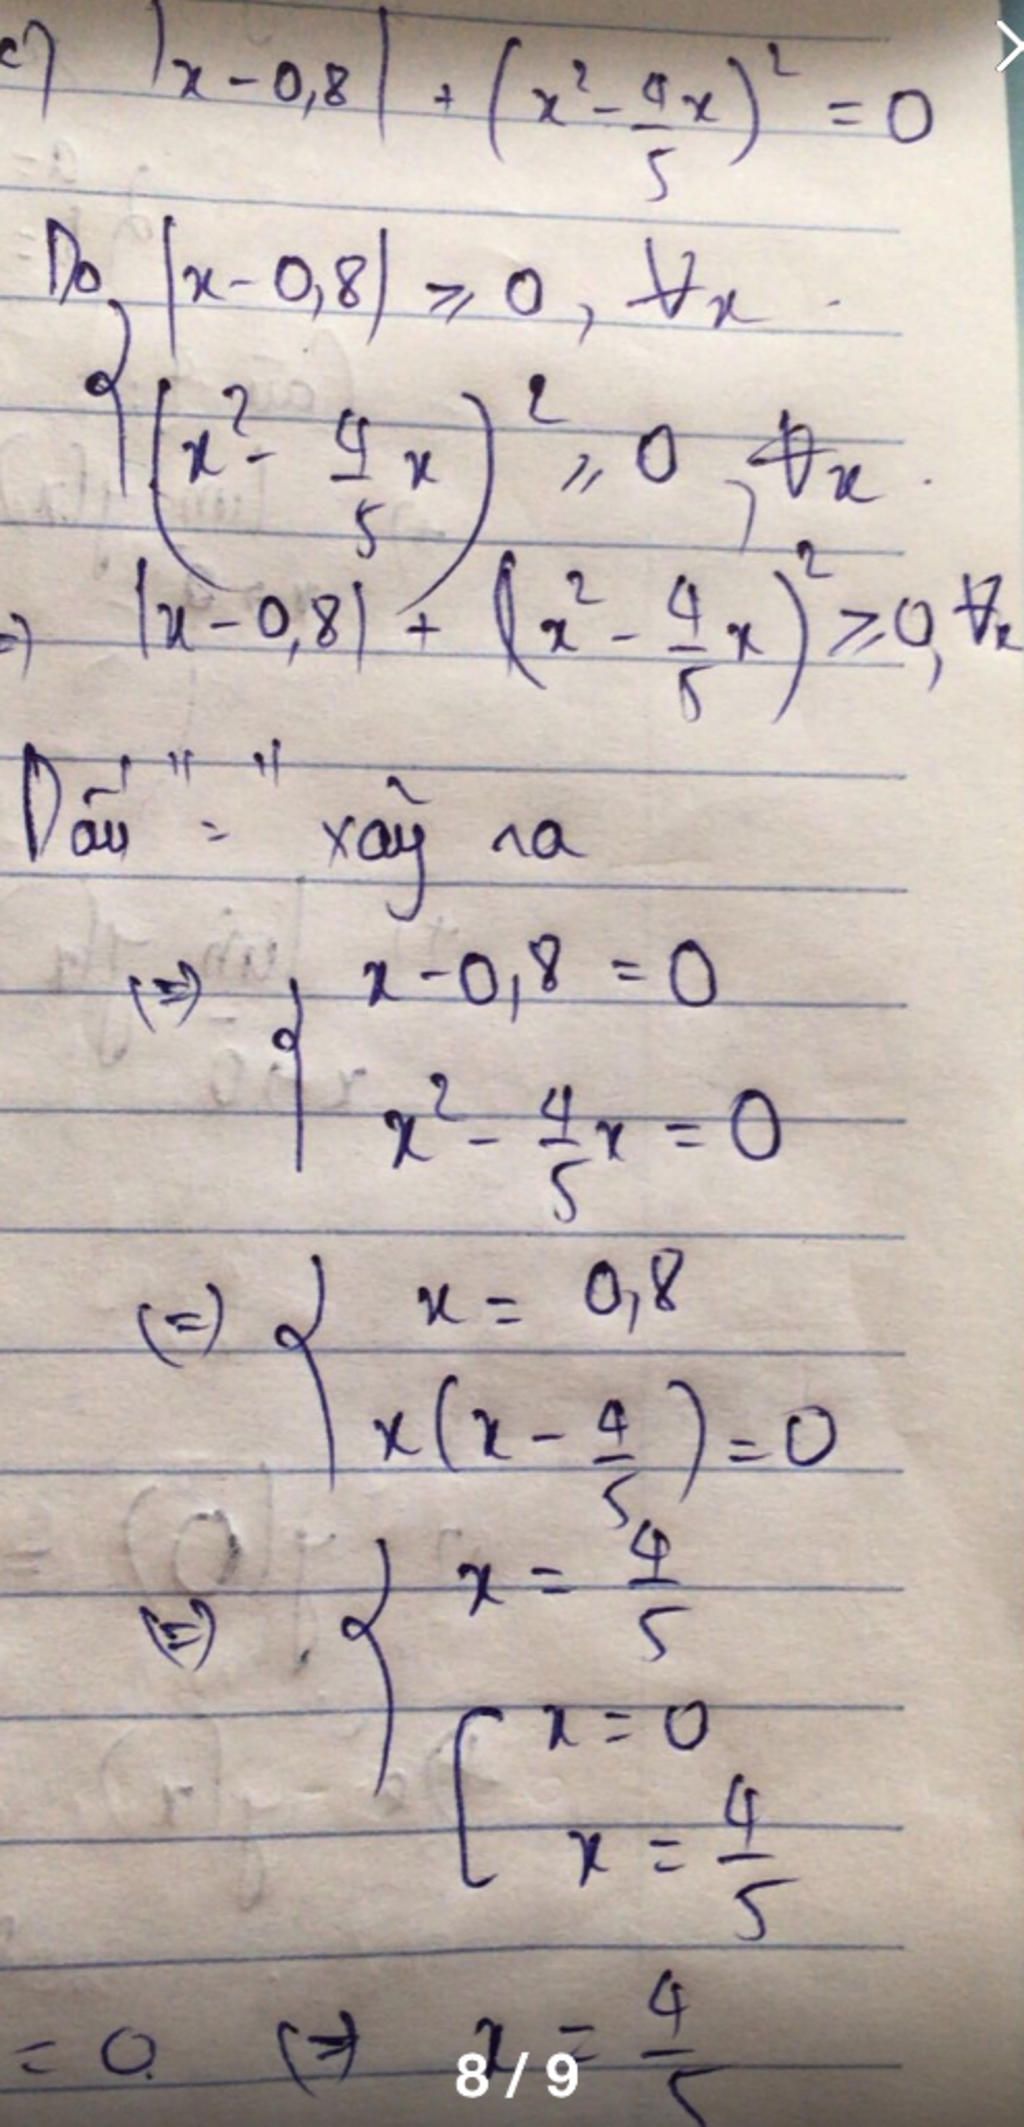 c) |x - 0,8| + (x² - 4/5 x)² = 0
Do |x - 0,8| ≥ 0, ∀x.
{ (x² - 4/5 x)² ≥ 0, ∀x.
=) |x - 0,8| + (x² - 4/5 x)² ≥ 0, ∀x
Dấu "=" xảy ra
(=) { x - 0,8 = 0
x² - 4/5 x = 0
(=) { x = 0,8
x(x - 4/5) = 0
(=) { x = 4/5
[ x = 0
x = 4/5
= 0 (=) x = 4/5
8 / 9